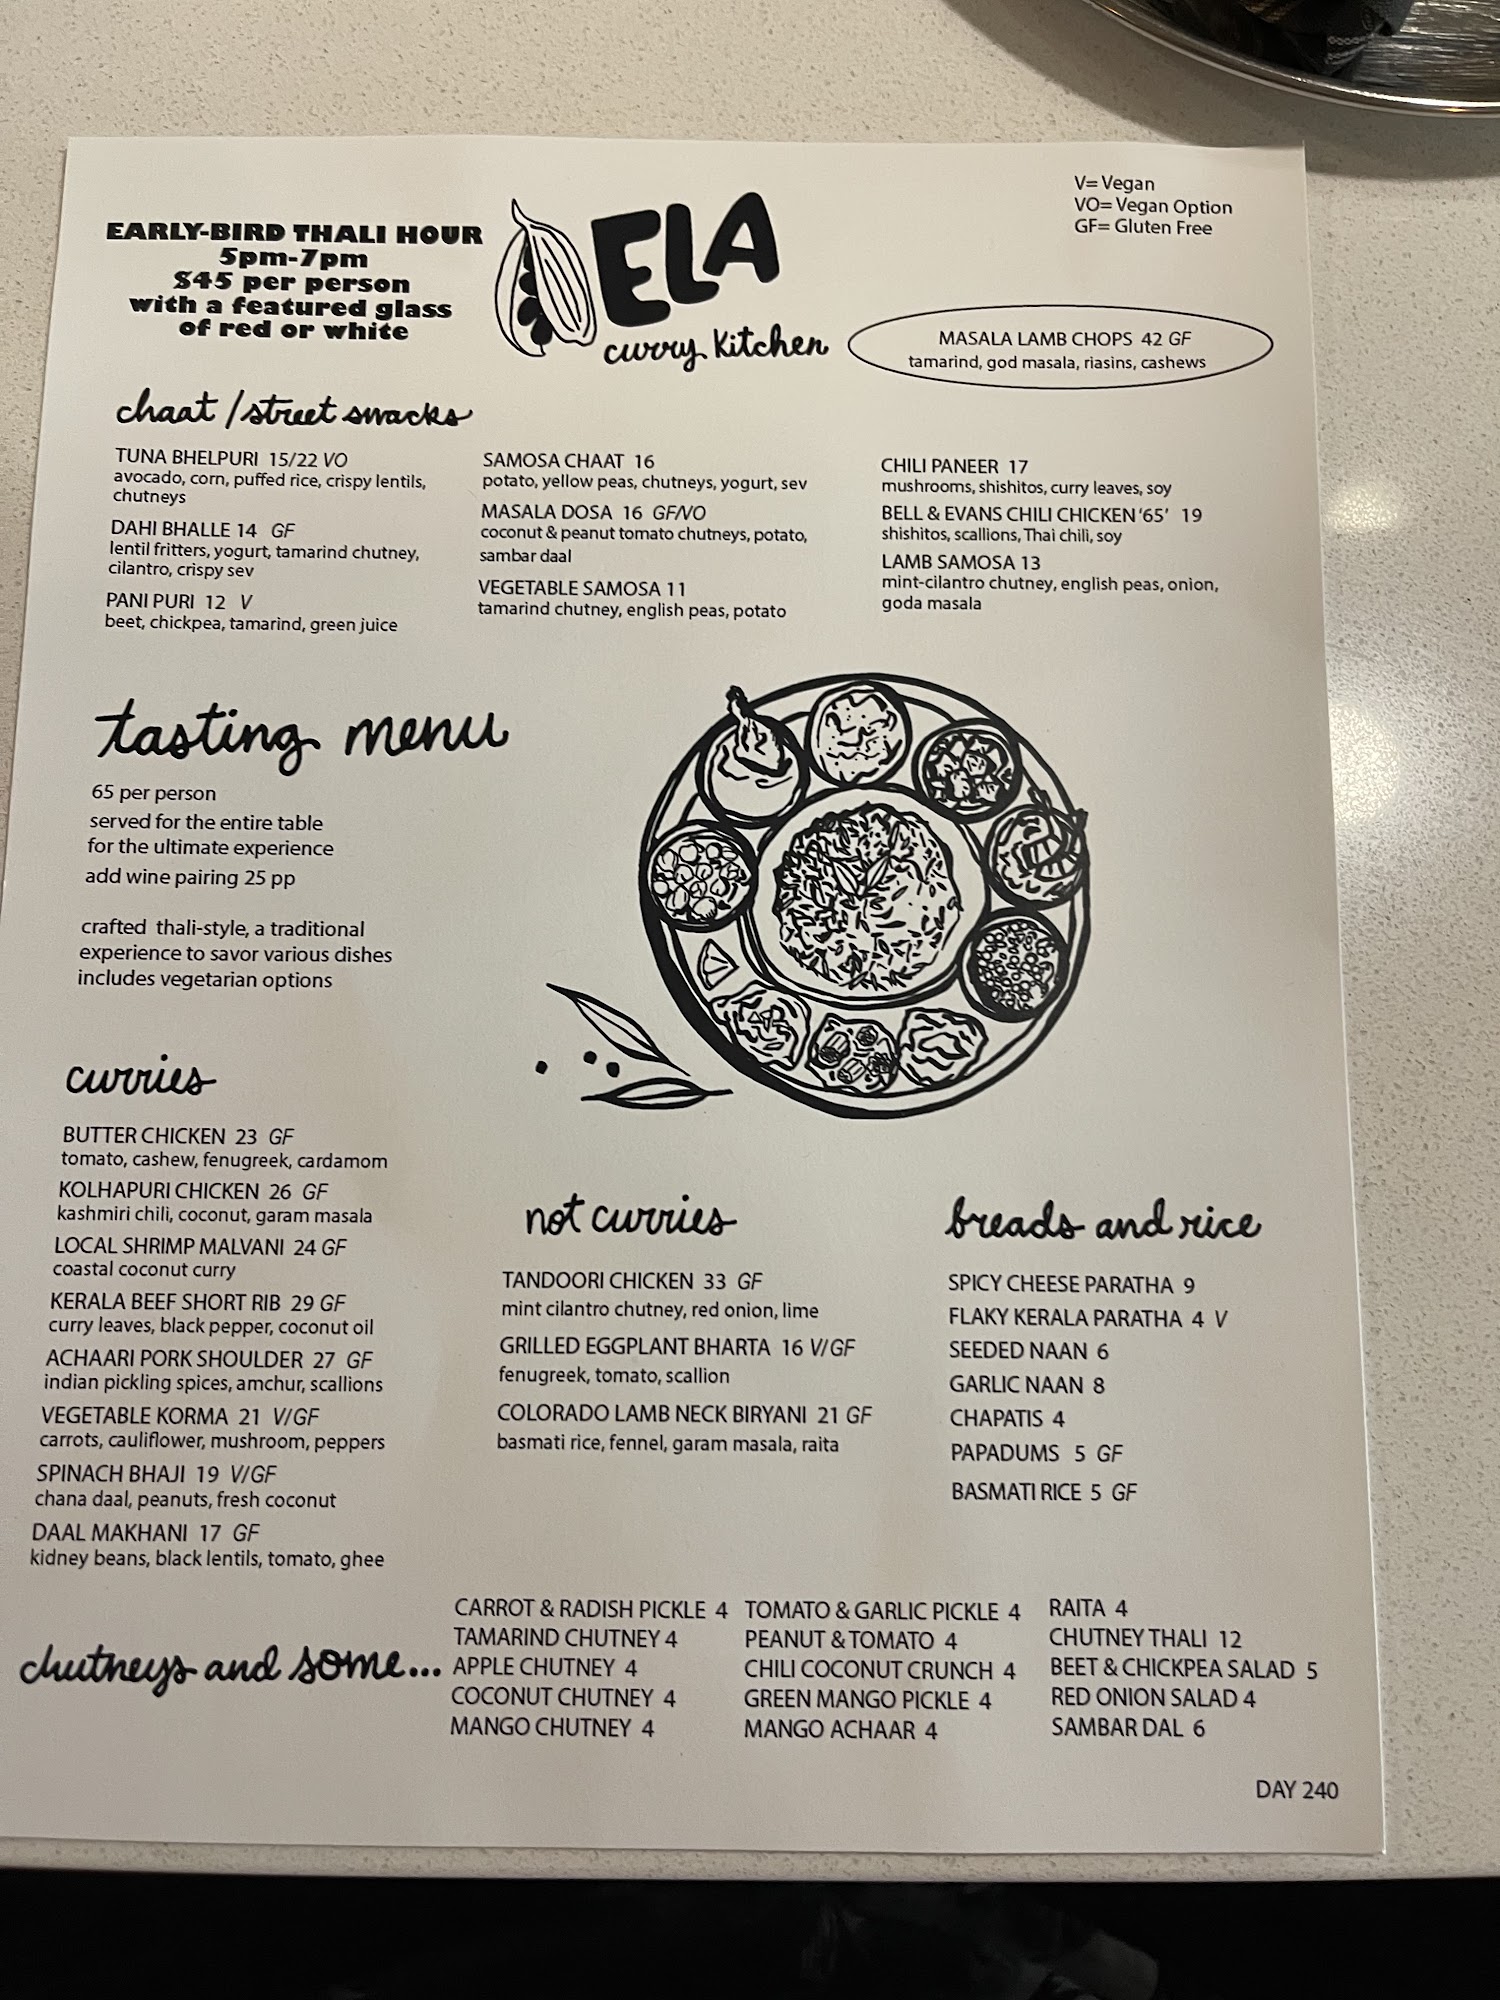 EARLY-BIRD THALI HOUR
5pm-7pm
$45 per person
with a featured glass
of red or white
ELA
curry Kitchen
V= Vegan
VO= Vegan Option
GF= Gluten Free
MASALA LAMB CHOPS 42 GF
tamarind, god masala, riasins, cashews
chaat / street snacks
TUNA BHELPURI 15/22 VO
avocado, corn, puffed rice, crispy lentils,
chutneys
DAHI BHALLE 14 GF
lentil fritters, yogurt, tamarind chutney,
cilantro, crispy sev
PANI PURI 12 V
beet, chickpea, tamarind, green juice
SAMOSA CHAAT 16
potato, yellow peas, chutneys, yogurt, sev
MASALA DOSA 16 GF/VO
coconut & peanut tomato chutneys, potato,
sambar daal
VEGETABLE SAMOSA 11
tamarind chutney, english peas, potato
CHILI PANEER 17
mushrooms, shishitos, curry leaves, soy
BELL & EVANS CHILI CHICKEN '65' 19
shishitos, scallions, Thai chili, soy
LAMB SAMOSA 13
mint-cilantro chutney, english peas, onion,
goda masala
tasting menu
65 per person
served for the entire table
for the ultimate experience
add wine pairing 25 pp
crafted thali-style, a traditional
experience to savor various dishes
includes vegetarian options
curries
BUTTER CHICKEN 23 GF
tomato, cashew, fenugreek, cardamom
KOLHAPURI CHICKEN 26 GF
kashmiri chili, coconut, garam masala
LOCAL SHRIMP MALVANI 24 GF
coastal coconut curry
KERALA BEEF SHORT RIB 29 GF
curry leaves, black pepper, coconut oil
ACHAARI PORK SHOULDER 27 GF
indian pickling spices, amchur, scallions
VEGETABLE KORMA 21 V/GF
carrots, cauliflower, mushroom, peppers
SPINACH BHAJI 19 V/GF
chana daal, peanuts, fresh coconut
DAAL MAKHANI 17 GF
kidney beans, black lentils, tomato, ghee
not curries
TANDOORI CHICKEN 33 GF
mint cilantro chutney, red onion, lime
GRILLED EGGPLANT BHARTA 16 V/GF
fenugreek, tomato, scallion
COLORADO LAMB NECK BIRYANI 21 GF
basmati rice, fennel, garam masala, raita
breads and rice
SPICY CHEESE PARATHA 9
FLAKY KERALA PARATHA 4 V
SEEDED NAAN 6
GARLIC NAAN 8
CHAPATIS 4
PAPADUMS 5 GF
BASMATI RICE 5 GF
chutneys and some...
CARROT & RADISH PICKLE 4
TAMARIND CHUTNEY 4
APPLE CHUTNEY 4
COCONUT CHUTNEY 4
MANGO CHUTNEY 4
TOMATO & GARLIC PICKLE 4
PEANUT & TOMATO 4
CHILI COCONUT CRUNCH 4
GREEN MANGO PICKLE 4
MANGO ACHAAR 4
RAITA 4
CHUTNEY THALI 12
BEET & CHICKPEA SALAD 5
RED ONION SALAD 4
SAMBAR DAL 6
DAY 240